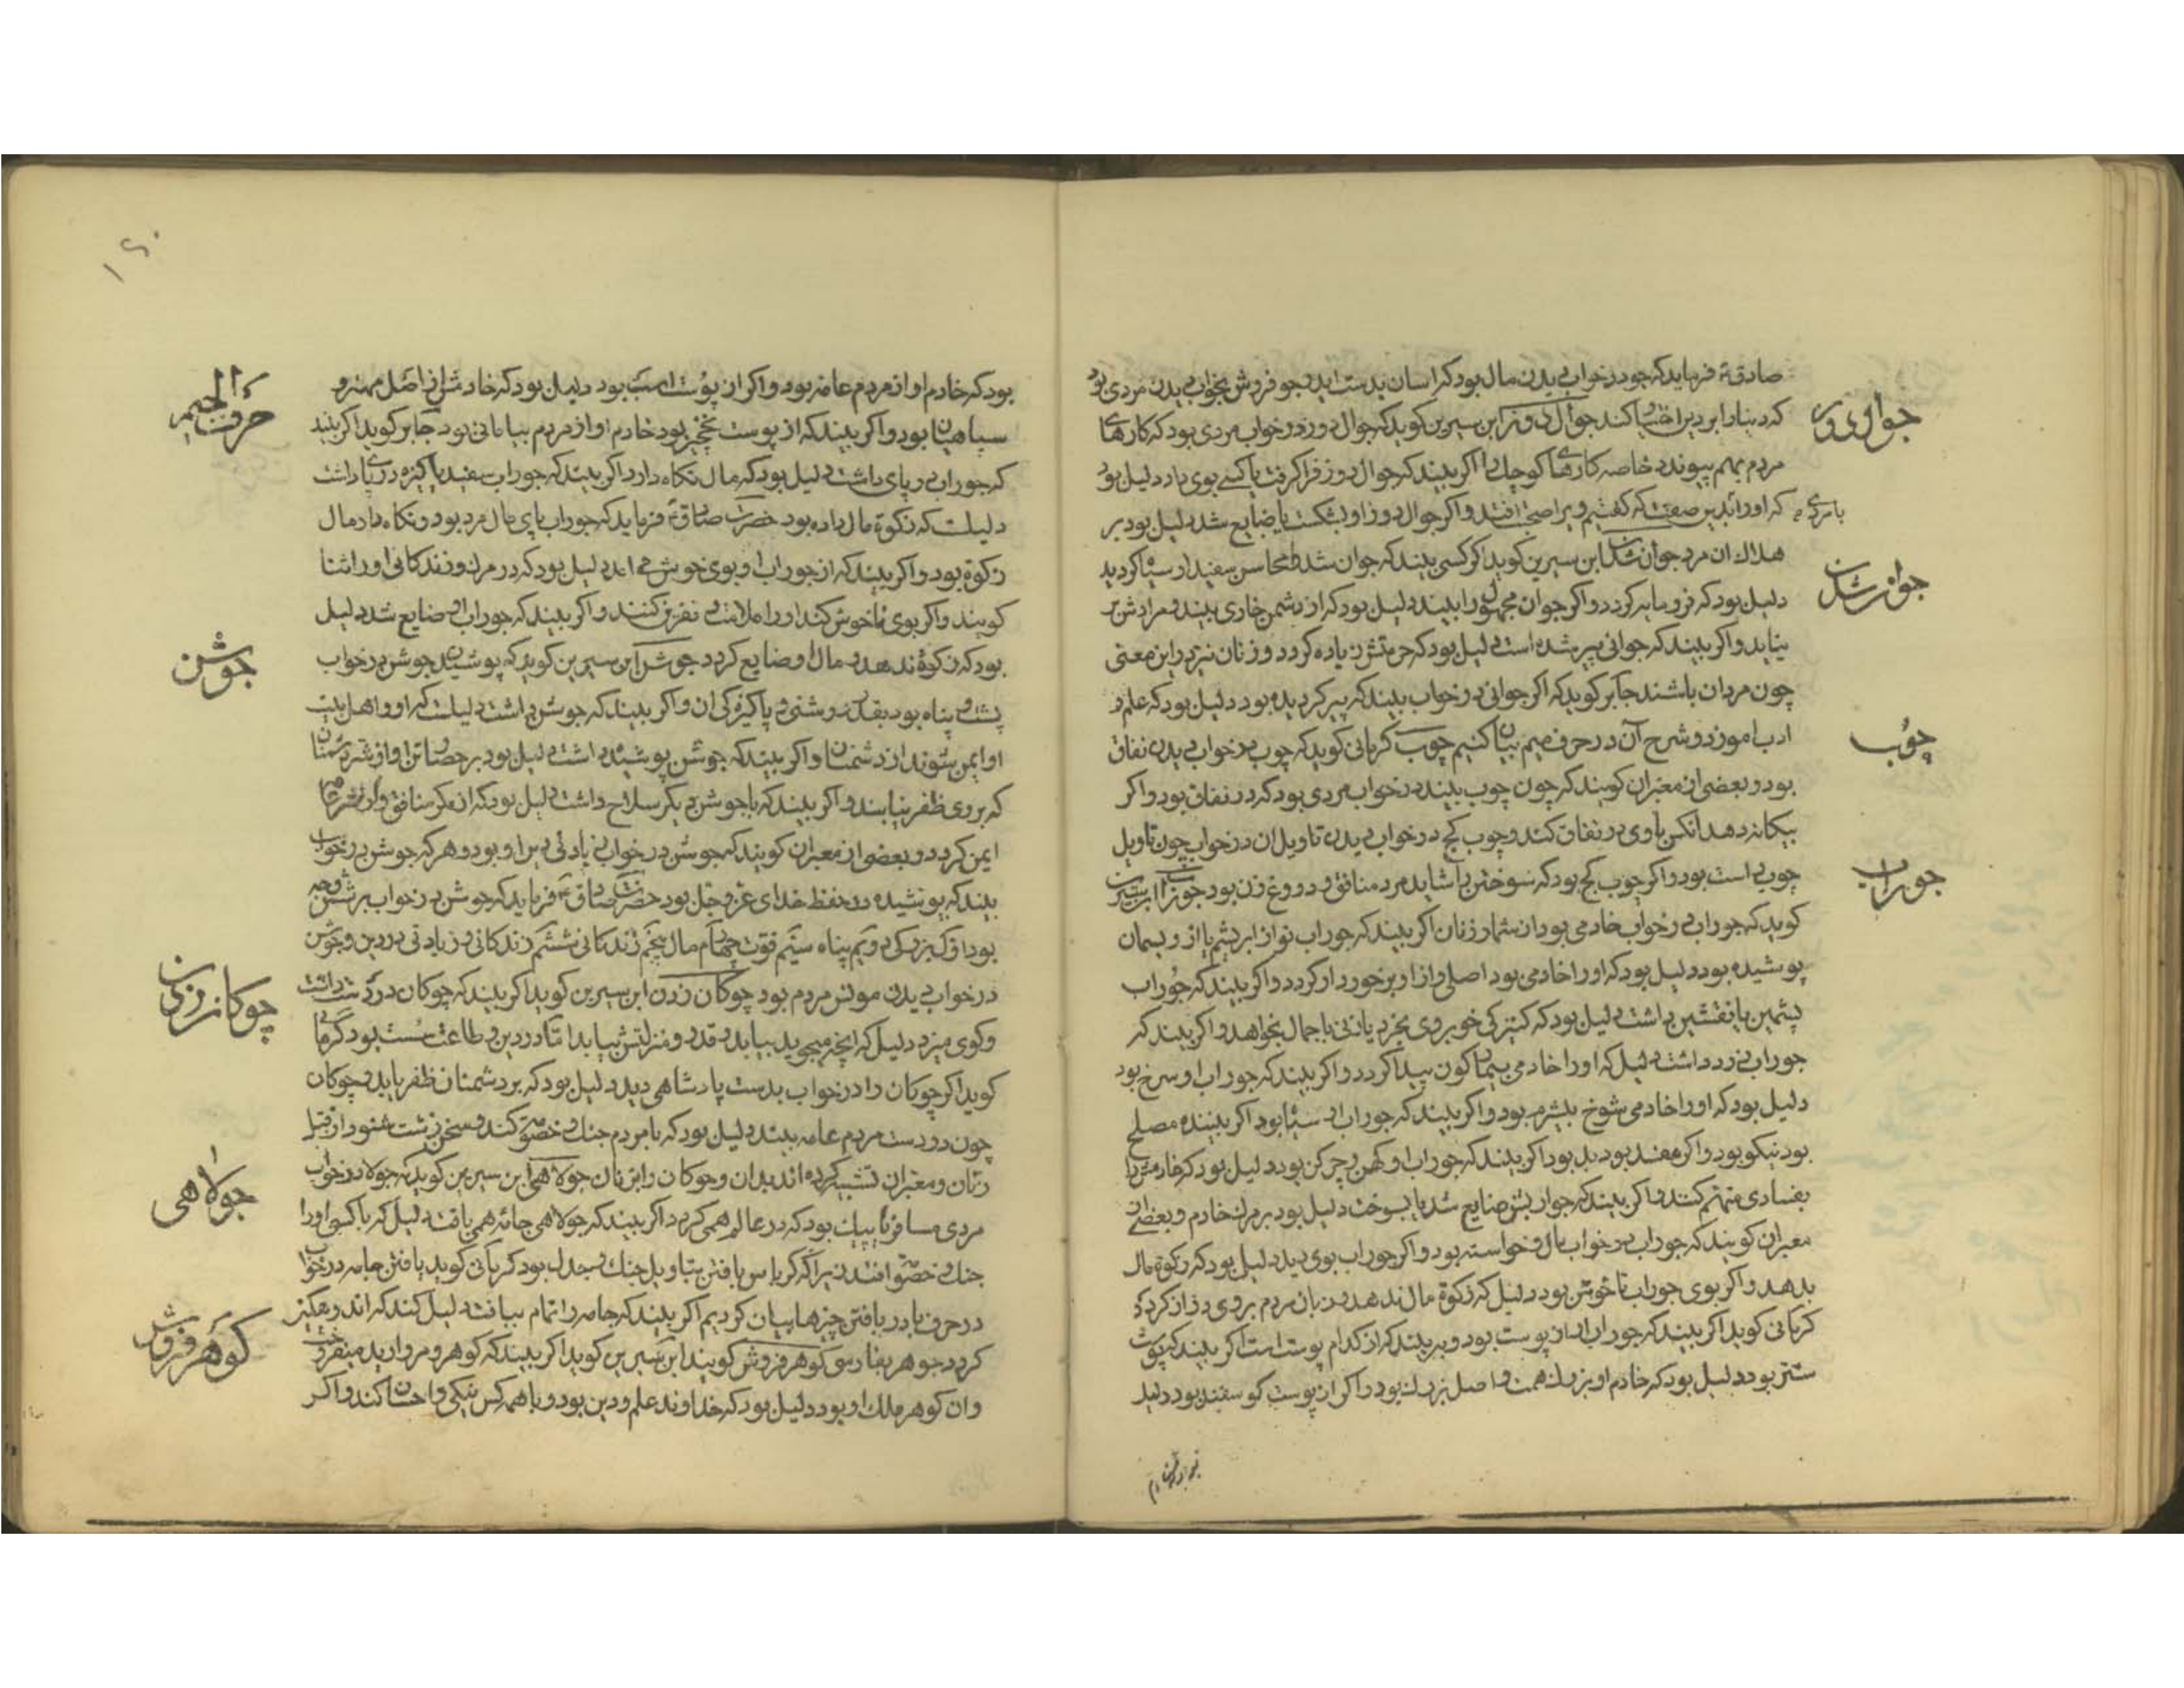 صادق ع فرماید که جو در خواب دیدن مال بود که اسان بدست اید و جو فروش بخواب دیدن مردی بود
جوال دوز
که دنیا را بر دین اختیار کند جوال دوز ابن سیرین گوید که جوال دوز در خواب مردی بود که کارهای
مردم بهم پیوندد خاصه کارهای کوچک را اگر بیند که جوال دوز فرا گرفت یا کسی بوی داد دلیل بود
با مردی
که او را بدین صفت که گفتیم ویرا صحبت افتد و اگر جوال دوز او بشکست یا ضایع شد دلیل بود بر
جوان شدن
هلاک ان مرد جوان شدن ابن سیرین گوید اگر کسی بیند که جوان شد محاسن سفید او سیاه گردید
دلیل بود که فرومایه گردد و اگر جوان مجهول را بیند دلیل بود که از دشمن خاری بیند و مرادش بر
نیاید و اگر بیند که جوانی پیر شده است دلیل بود که حرمتش زیاده گردد و زنان نیز در این معنی
چون مردان باشند جابر گوید که اگر جوانی در خواب بیند که پیر گردیده بود دلیل بود که علم و
چوب
ادب اموزد و شرح آن در حرف میم بیان کنیم چوب کرمانی گوید که چوب در خواب دیدن نفاق
بود و بعضی از معبران گویند که چون چوب بیند در خواب مردی بود که در نفاق بود و اگر
بیگانه دهد انکس با وی در نفاق کند و چوب کج در خواب دیدن تاویل ان در خواب چون تاویل
جوراب
چوب است بود و اگر چوب کج بود که سوختن را شاید مرد منافق و دروغ زن بود جوراب ابن سیرین
گوید که جوراب در خواب خادمی بود از شمار زنان اگر بیند که جوراب نو از ابریشم یا از ریسمان
پوشیده بود دلیل بود که او را خادمی بود اصلی و از او برخوردار گردد و اگر بیند که جوراب
پشمین با نقشین داشت دلیل بود که کنیزکی خوبروی بخرد یا زنی با جمال بخواهد و اگر بیند که
جوراب زرد داشت دلیل که او را خادمی بیمار گون پیدا گردد و اگر بیند که جوراب او سرخ بود
دلیل بود که او را خادمی شوخ بیشرم بود و اگر بیند که جوراب او سیاه بود اگر بیننده مصلح
بود نیکو بود و اگر مفسد بود بد بود اگر بیند که جوراب او کهن و چرکن بود دلیل بود که خادمش را
بفسادی متهم کنند و اگر بیند که جورابش ضایع شد یا بسوخت دلیل بود بر مرگ خادم و بعضی از
معبران گویند که جوراب در خواب مال و خواسته بود و اگر جوراب بوی دید دلیل بود که زکوة مال
بدهد و اگر بوی جوراب ناخوش بود دلیل که زکوة مال ندهد و زبان مردم بر وی دراز گردد
کرمانی گوید اگر بیند که جوراب از پوست بود و ببیند که از کدام پوست است اگر بیند که پوست
شتر بود دلیل بود که خادم او بزرگ همت و اصل بزرگ بود و اگر از پوست گوسفند بود دلیل
۱۶۰
حرف الجیم
بود که خادم او از مردم عامه بود و اگر از پوست اسب بود دلیل بود که خادمش از اصل مهتر و
سپاهیان بود و اگر بیند که از پوست نخچیر بود خادم او از مردم بیابانی بود جابر گوید اگر بیند
که جوراب در پای داشت دلیل بود که مال نگاه دارد اگر بیند که جوراب سفید پاکیزه در پا داشت
دلیلست که زکوة مال داده بود حضرت صادق ع فرماید که جوراب پای مال مرد بود و نگاه دار مال
زکوة بود و اگر بیند که از جوراب او بوی خوش می آید دلیل بود که در مرگ و زندگانی او را ثنا
گویند و اگر بوی ناخوش کند او را ملامت و نفرین کنند و اگر بیند که جوراب او ضایع شد دلیل
جوشن
بود که زکوة ندهد و مال او ضایع گردد جوشن ابن سیرین گوید که پوشیدن جوشن در خواب
پشت و پناه بود بقدر روشنی و پاکیزگی ان و اگر بیند که جوشن داشت دلیلست که او و اهل بیت
او ایمن شوند از دشمنان و اگر بیند که جوشن پوشیده داشت دلیل بود بر حصار تن او از شر دشمنان
که بر وی ظفر نیابند و اگر بیند که با جوشن دیگر سلاح داشت دلیل بود که از مکر منافق و از شر
ایمن گردد و بعضی از معبران گویند که جوشن در خواب زیادتی دین او بود و هر که جوشن در خواب
بیند که پوشیده در حفظ خدای عز و جل بود حضرت صادق ع فرماید که جوشن در خواب بر شش وجه
بود اول بزرگی دویم پناه سیم قوت چهارم مال پنجم زندگانی ششم زندگانی و زیادتی در دین و جوشن
چوکان زدن
در خواب دیدن مونس مردم بود چوکان زدن ابن سیرین گوید اگر بیند که چوکان در دست داشت
و گوی میزد دلیل که انچه میجوید بیابد و قدر و منزلتش بیابد اما در دین و طاعت سست بود کرمانی
گوید اگر چوکان را در خواب بدست پادشاهی دید دلیل بود که بر دشمنان ظفر یابد و چوکان
چون در دست مردم عامه بیند دلیل بود که با مردم جنک و خصومت کند و سخن زشت شنود از قبل
جولاهی
زنان و معبران تشبیه کرده اند بدان و چوکان را بزنان جولاهی ابن سیرین گوید که جولاه در خواب
مردی مسافر یا پیک بود که در عالم همی گردد اگر بیند که جولاهی جامه همی بافت دلیل که با کسی او را
جنک و خصومت افتد زیرا که کرباس بافتن بتاویل جنک و جدل بود کرمانی گوید بافتن جامه در خواب
در حرف با در بافتن چیزها بیان کردیم اگر بیند که جامه را تمام ببافت دلیل کند که اندوهگین
گوهر فروش
گردد جوهر بفارسی گوهر فروش گویند ابن سیرین گوید اگر بیند که گوهر و مروارید میفروخت
و ان گوهر ملک او بود دلیل بود که خداوند علم و دین بود و با همه کس نیکی و احسان کند و اگر